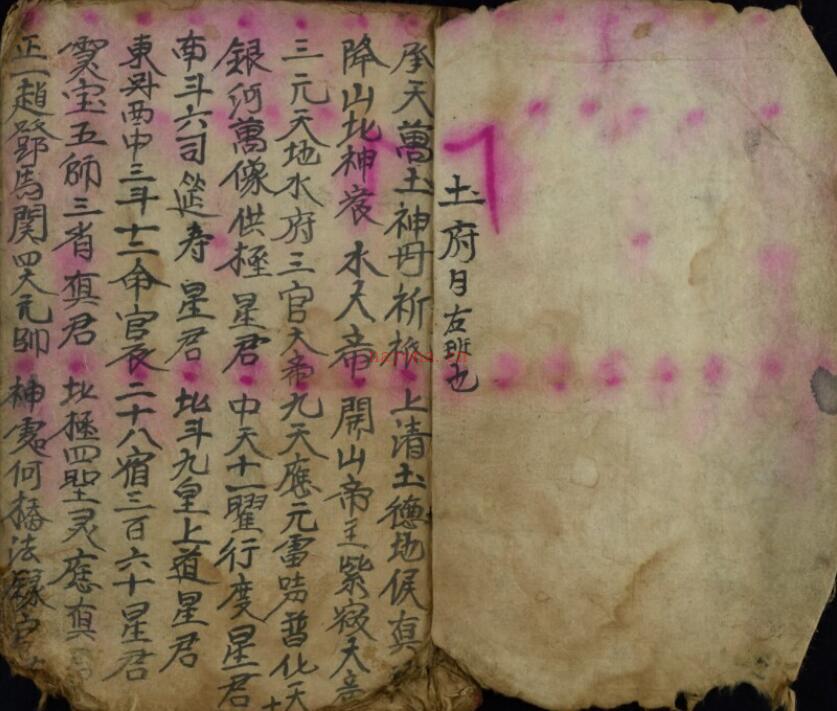 土府月右班也
承天萬土神毋祈 上清土德地侯真
降山北神 水天帝 開山帝主紫微天帝
三元天地水府三官大帝九天應元雷声普化天
銀河萬像供極星君 中天十一曜行度星君
南斗六司延寿星君 北斗九皇上道星君
東斗西中三斗十二命官辰二十八宿三百六十星君
灵宝五師三省真君 北極四聖灵應真
正一趙鄧馬関四大元帅 神霄何 法籙